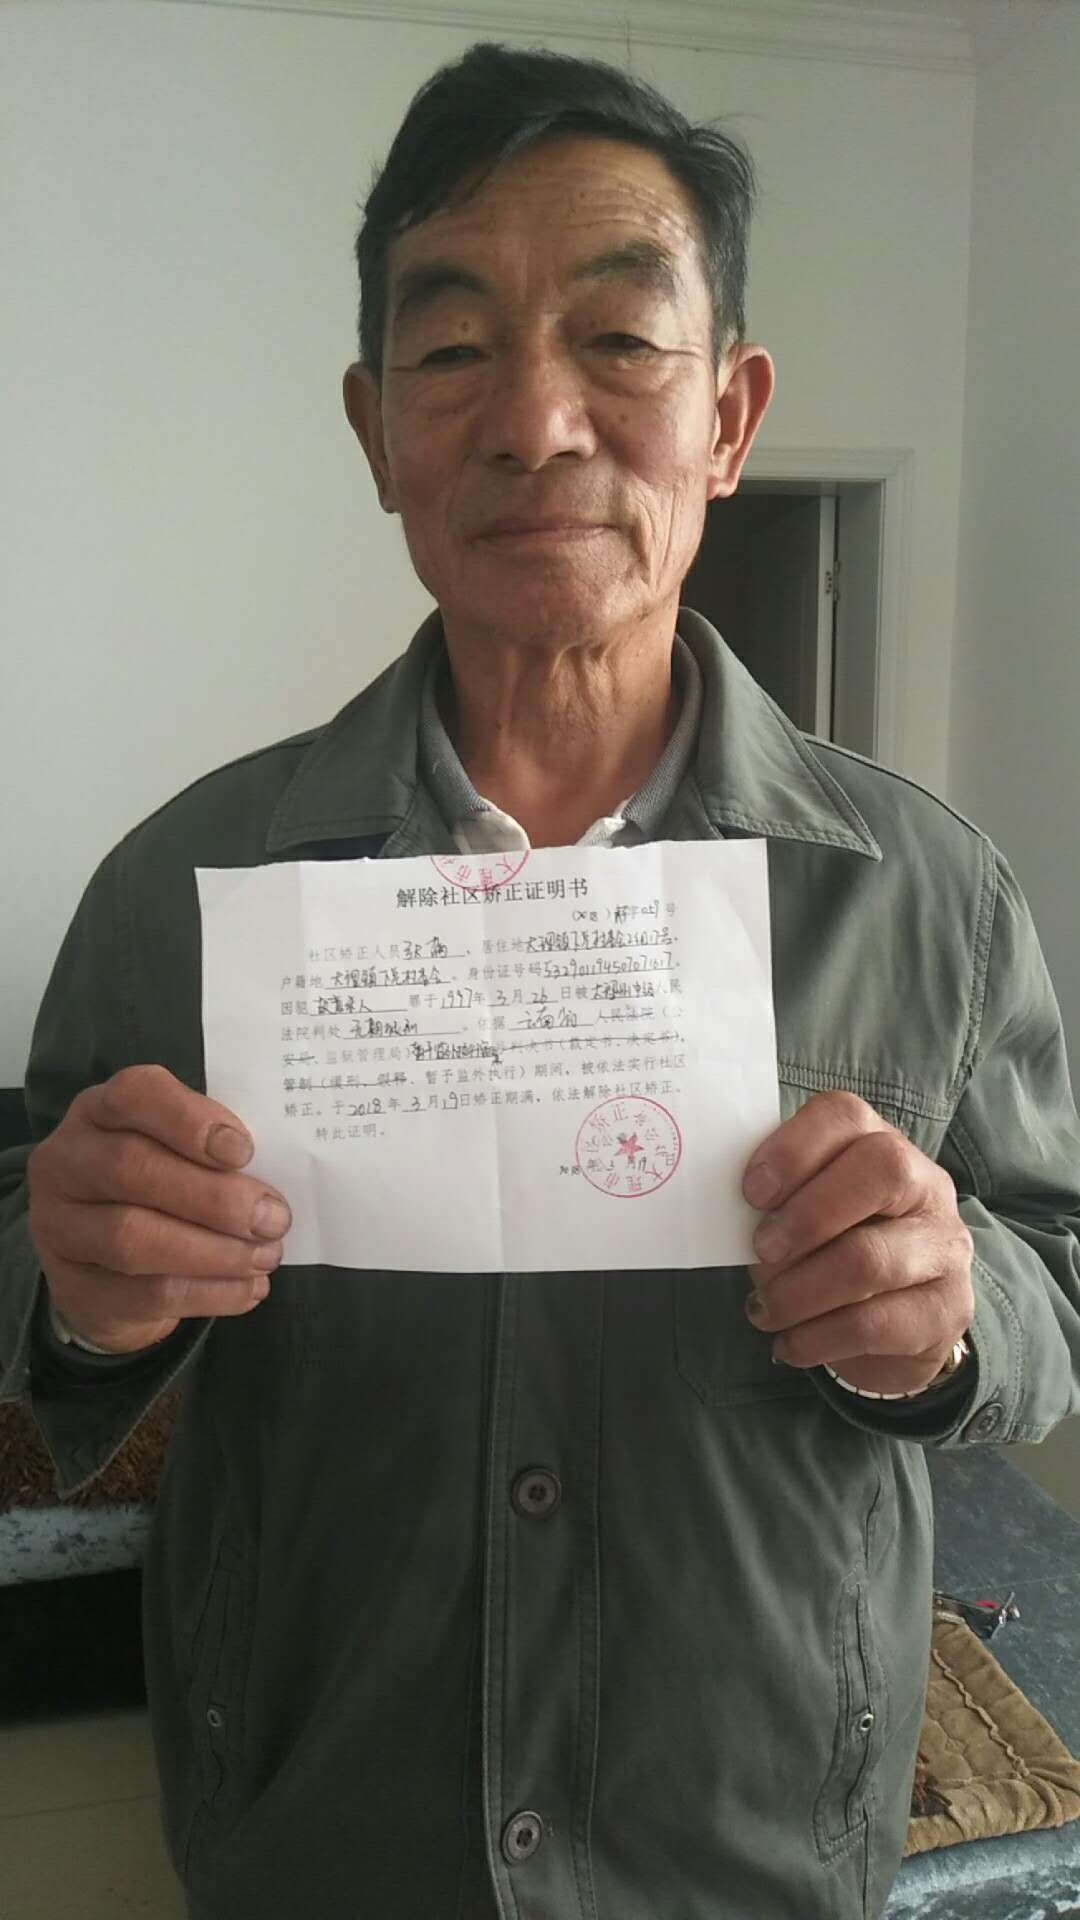 解除社区矫正证明书
字 号
社区矫正人员 , 居住地大理镇下兑村委会2组17号,
户籍地 大理镇下兑村委会 。身份证号码532901194507071617。
因犯 故意杀人 罪于1997年 3 月 26 日被大理州中级人民
法院判处 无期徒刑 。依据 云南省 人民法院(公
安局、监狱管理局) 判决书(裁定书、决定书),
管制(缓刑、假释、暂予监外执行)期间,被依法实行社区
矫正。于2018年 3 月19日矫正期满,依法解除社区矫正。
特此证明。
2018年 3 月19日
大理市
区矫正